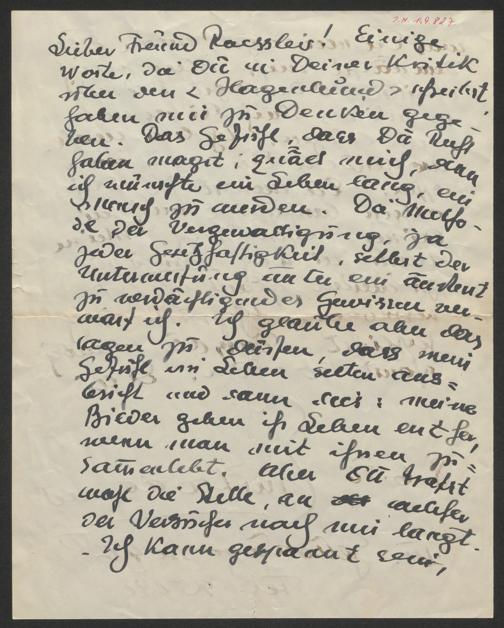 I.N. 149.827
Lieber Freund Roessler! Einige
Worte, die Du in Deiner Kritik
über den "Hagenbund" schreibst
haben mir zu Denken gege-
ben. Das Gefühl, dass Du Recht
haben magst, quält mich, denn
ich wünschte ein Leben lang, ein
Mensch zu werden. Die Metho-
de der Vergewaltigung, ja
jeder Geschäftigkeit, selbst der
Unterwerfung unter ein äusserst
zu verdächtigendes Gewissen ver-
warf ich. Ich glaube aber das
sagen zu dürfen, dass mein
Gefühl im Leben selten aus-
bricht und dann dies: meine
Bilder geben ihr Leben erst her,
wenn man mit ihnen zu=
sammenlebt. Aber Du trafst
wohl die Stelle, an welcher
der Versucher nach mir langt.
- Ich kann gespannt sein,